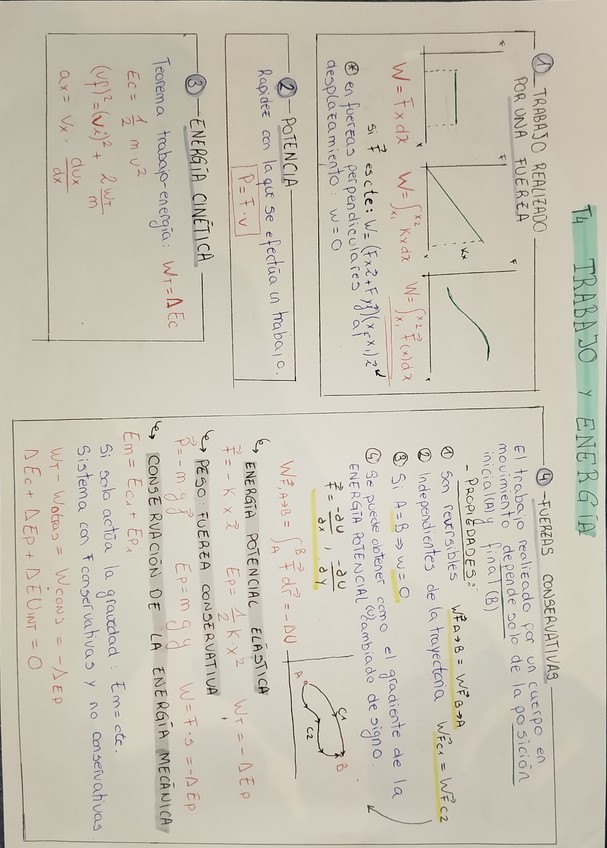 T4 TRABAJO Y ENERGÍA
① TRABAJO REALIZADO
POR UNA FUERZA
F
x
F
Kx
F
x
W = Fxdx W = ∫x₁^x₂ Kxdx W = ∫x₁^x₂ F(x)dx
si F⃗ es cte: W = (Fx
⊛ en fuerzas perpendiculares al
desplazamiento: W = 0
② POTENCIA
Rapidez con la que se efectúa un trabajo.
P = F · v
③ ENERGÍA CINÉTICA
Teorema trabajo-energía: WT = ΔEc
Ec = 1/2 m v²
(vf)² = (vi)² + 2WT/m
ax = vx · dvx/dx
④ FUERZAS CONSERVATIVAS
El trabajo realizado por un cuerpo en
movimiento depende solo de la posición
inicial (A) y final (B)
- PROPIEDADES:
① Son reversibles WF⃗A→B = WF⃗B→A
② Independientes de la trayectoria WF⃗C1 = WF⃗C2
③ Si A=B ⇒ W = 0
④ Se puede obtener como el gradiente de la
ENERGÍA POTENCIAL (U) cambiado de signo.
F⃗ = -∂U/∂x , -∂U/∂y
WF⃗,A→B = ∫A^B F⃗ dr⃗ = -ΔU
A
C1
C2
B
↪ ENERGÍA POTENCIAL ELÁSTICA
F⃗ = -K x Ep = 1/2 K x² WT = -ΔEp
↪ PESO FUERZA CONSERVATIVA
P⃗ = -m g Ep = m g y W = F·s = -ΔEp
↪ CONSERVACIÓN DE LA ENERGÍA MECÁNICA
Em = Ec₁ + Ep₁
Si solo actúa la gravedad: Em = cte.
Sistema con F conservativas y no conservativas
WT - Wotras = Wcons = -ΔEp
ΔEc + ΔEp + ΔUINT = 0